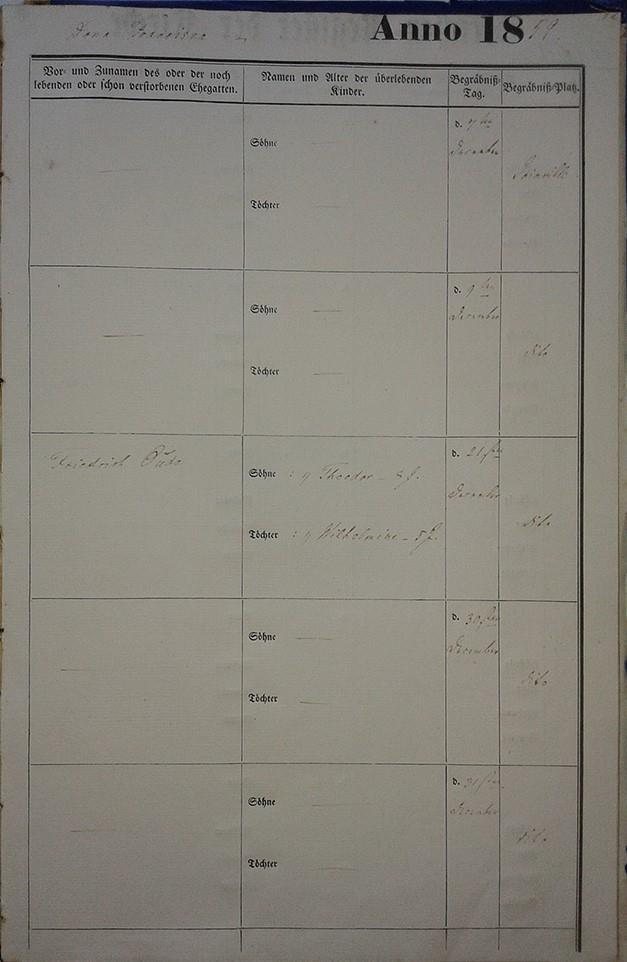 Dona Francisca
Anno 1859.
Vor- und Zunamen des oder der noch
lebenden oder schon verstorbenen Ehegatten.
Namen und Alter der überlebenden
Kinder.
Begräbniß-
Tag.
Begräbniß-Platz.
Söhne
Töchter
d. 7ten
December
Joinville
Söhne
Töchter
d. 9ten
December
dito
Friedrich
Söhne : 1 Theodor - 8 J.
Töchter : 1 Wilhelmine - 5 J.
d. 21sten
December
dito
Söhne
Töchter
d. 30sten
December
dito
Söhne
Töchter
d. 31sten
December
dito